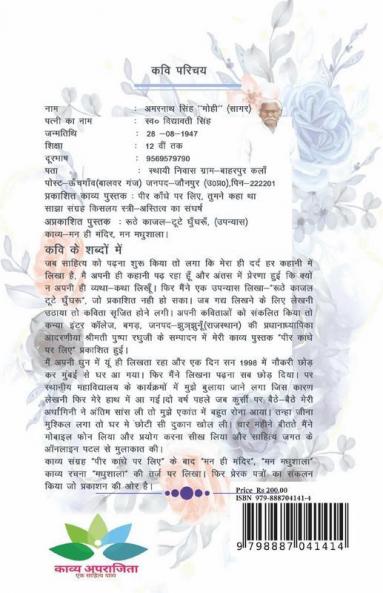 कवि परिचय
नाम : अमरनाथ सिंह "मोही" (सागर)
पत्नी का नाम : स्व० विद्यावती सिंह
जन्मतिथि : 28 -08-1947
शिक्षा : 12 वीं तक
दूरभाष : 9569579790
पता : स्थायी निवास ग्राम-बाहरपुर कलाँ
पोस्ट-ऊँचगाँव(बालवर गंज) जनपद-जौनपुर (उ०प्र०),पिन-222201
प्रकाशित काव्य पुस्तक : पीर काँधे पर लिए, तुमने कहा था
साझा संग्रह किसलय स्त्री-अस्तित्व का संघर्ष
अप्रकाशित पुस्तक : रूठे काजल-टूटे घुँघरूँ, (उपन्यास)
काव्य-मन ही मंदिर, मन मधुशाला।
कवि के शब्दों में
जब साहित्य को पढ़ना शुरू किया तो लगा कि मेरा ही दर्द हर कहानी में
लिखा है, मै अपनी ही कहानी पढ़ रहा हूँ और अंतस में प्रेरणा हुई कि क्यों
न अपनी ही व्यथा-कथा लिखूँ। फिर मैंने एक उपन्यास लिखा-"रूठे काजल
टूटे घुँघरू", जो प्रकाशित नही हो सका। जब गद्य लिखने के लिए लेखनी
उठाया तो कविता सृजित होने लगी। अपनी कविताओं को संकलित किया तो
कन्या इंटर कॉलेज, बगड़, जनपद-झुञ्झुनूँ(राजस्थान) की प्रधानाध्यापिका
आदरणीया श्रीमती पुष्पा रघुजी के सम्पादन में मेरी काव्य पुस्तक "पीर काधे
पर लिए" प्रकाशित हुई।
में अपनी धुन में यूं ही लिखता रहा और एक दिन सन 1998 में नौकरी छोड़
कर मुंबई से घर आ गया। फिर मैंने लिखना पढ़ना सब छोड़ दिया। पर
स्थानीय महाविद्यालय के कार्यक्रमों में मुझे बुलाया जाने लगा जिस कारण
लेखनी फिर मेरे हाथ में आ गई।दो वर्ष पहले जब कुर्सी पर बैठे-बैठे मेरी
अर्धांगिनी ने अंतिम सांस ली तो मुझे एकांत में बहुत रोना आया। तन्हा जीना
मुश्किल लगा तो घर मे छोटी सी दुकान खोल ली। चार महीने बीतते मैंने
मोबाइल फोन लिया और प्रयोग करना सीख लिया और साहित्य जगत के
ऑनलाइन पटल से मुलाकात की।
काव्य संग्रह "पीर काधे पर लिए" के बाद "मन ही मंदिर", "मन मधुशाला"
काव्य रचना "मधुशाला" की तर्ज पर लिखा। फिर प्रेरक पत्रों का संकलन
किया जो प्रकाशन की ओर है।
Price Rs 200.00
ISBN 979-888704141-4
9 798887 041414
काव्य अपराजिता
एक साहित्य यात्रा